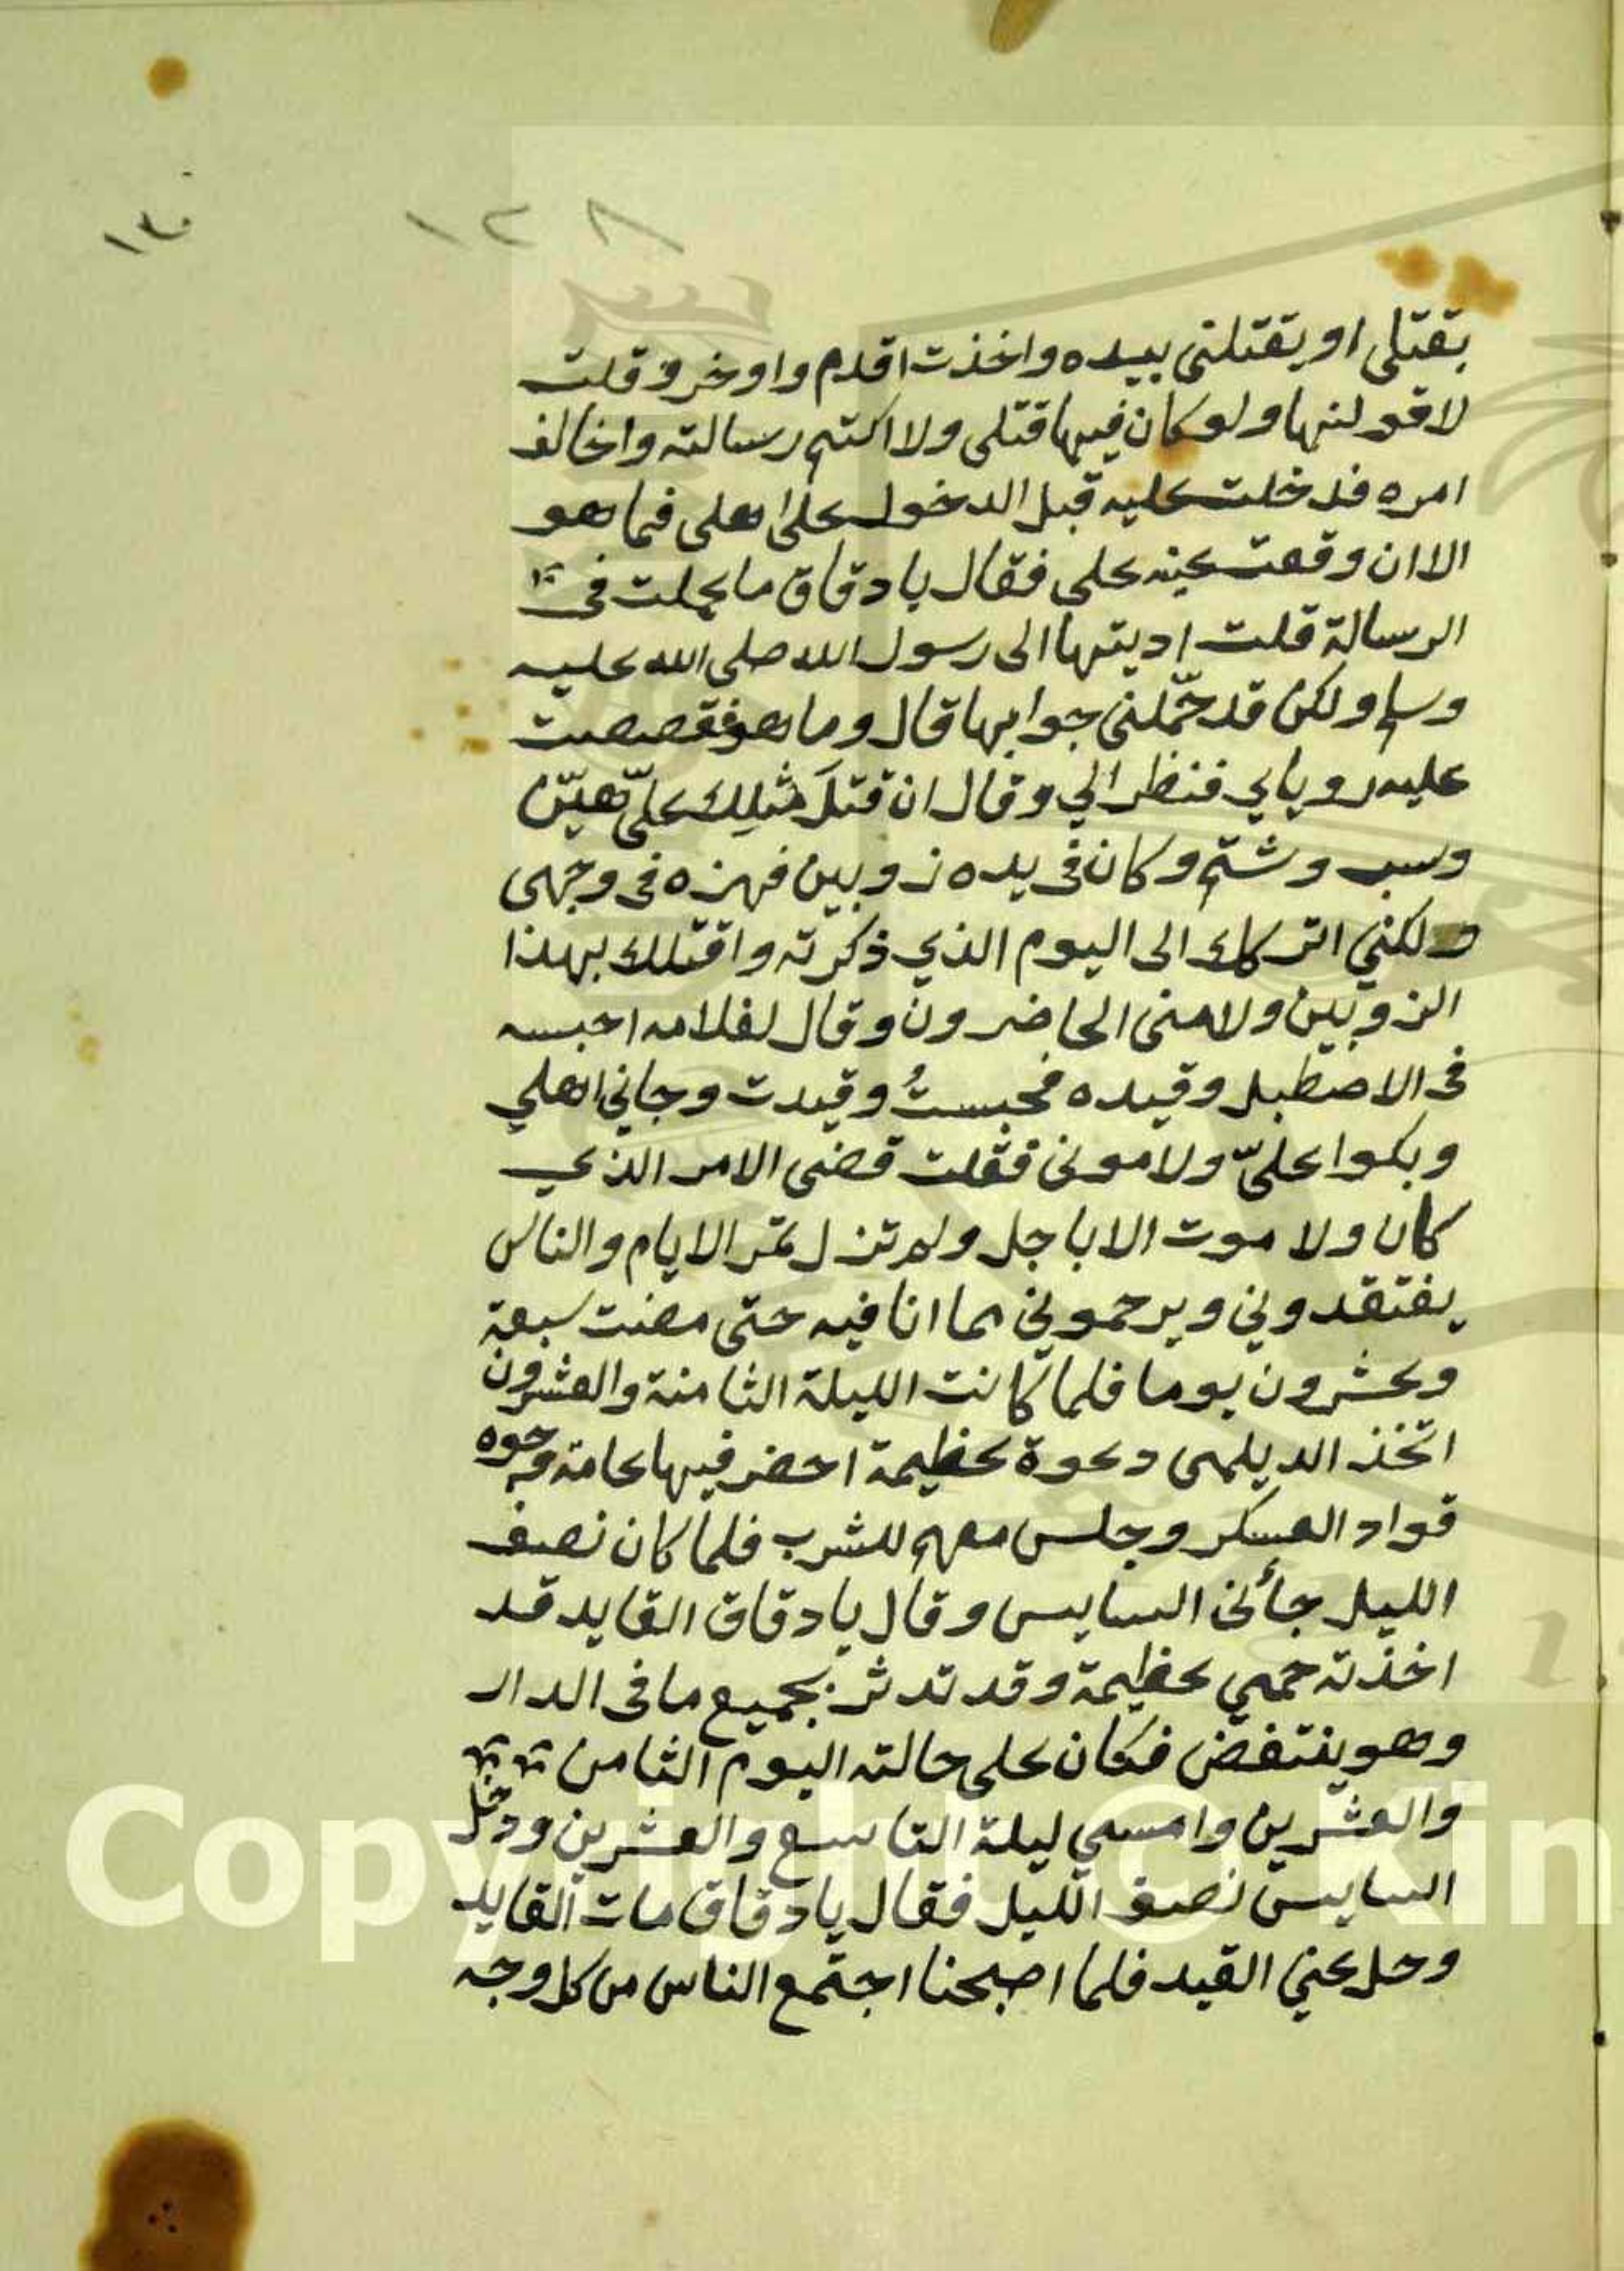 ١٣٠
١٢٨
بقتلى او يقتلنى بيده واخذت اقدم واوخر وقلت
لاقولنها ولو كان فيها قتلى ولا اكتم رسالته واخالف
امره فدخلت عليه قبل الدخول على اهلى فما هو
الا ان وقعت عينه على فقال يا دقاق ما عملت فى
الرسالة قلت اديتها الى رسول الله صلى الله عليه
وسلم ولكن قد حمّلنى جوابها قال وما هو فقصصت
عليه روياي فنظر الي وقال ان قتلَ مثلِك عليّ هيّن
وسب وشتم وكان فى يده زوبين فهزه فى وجهى
ولكني اتركك الى اليوم الذي ذكرته واقتلك بهذا
الزوبين ولامنى الحاضرون وقال لغلامه احبسه
فى الاصطبل وقيده فحبستُ وقيدت وجاني اهلي
وبكوا عليّ ولامونى فقلت قضى الامر الذي
كان ولا موت الا باجل ولم تزل تمر الايام والناس
يفتقدوني ويرحموني مما انا فيه حتى مضت سبعة
وعشرون يوما فلما كانت الليلة الثامنة والعشرون
اتخذ الديلمى دعوة عظيمة احضر فيها عامة وجوه
قواد العسكر وجلس معهم للشرب فلما كان نصف
الليل جأنى السايس وقال يا دقاق القايد قد
اخذته حمي عظيمة وقد تدثر بجميع ما فى الدار
وهو ينتفض فكان على حالته اليوم الثامن
والعشرين وامسي ليلة التاسع والعشرين ودخل
السايس نصف الليل فقال يا دقاق مات القايد
وحل عني القيد فلما اصبحنا اجتمع الناس من كل وجه
Copyright © Kin